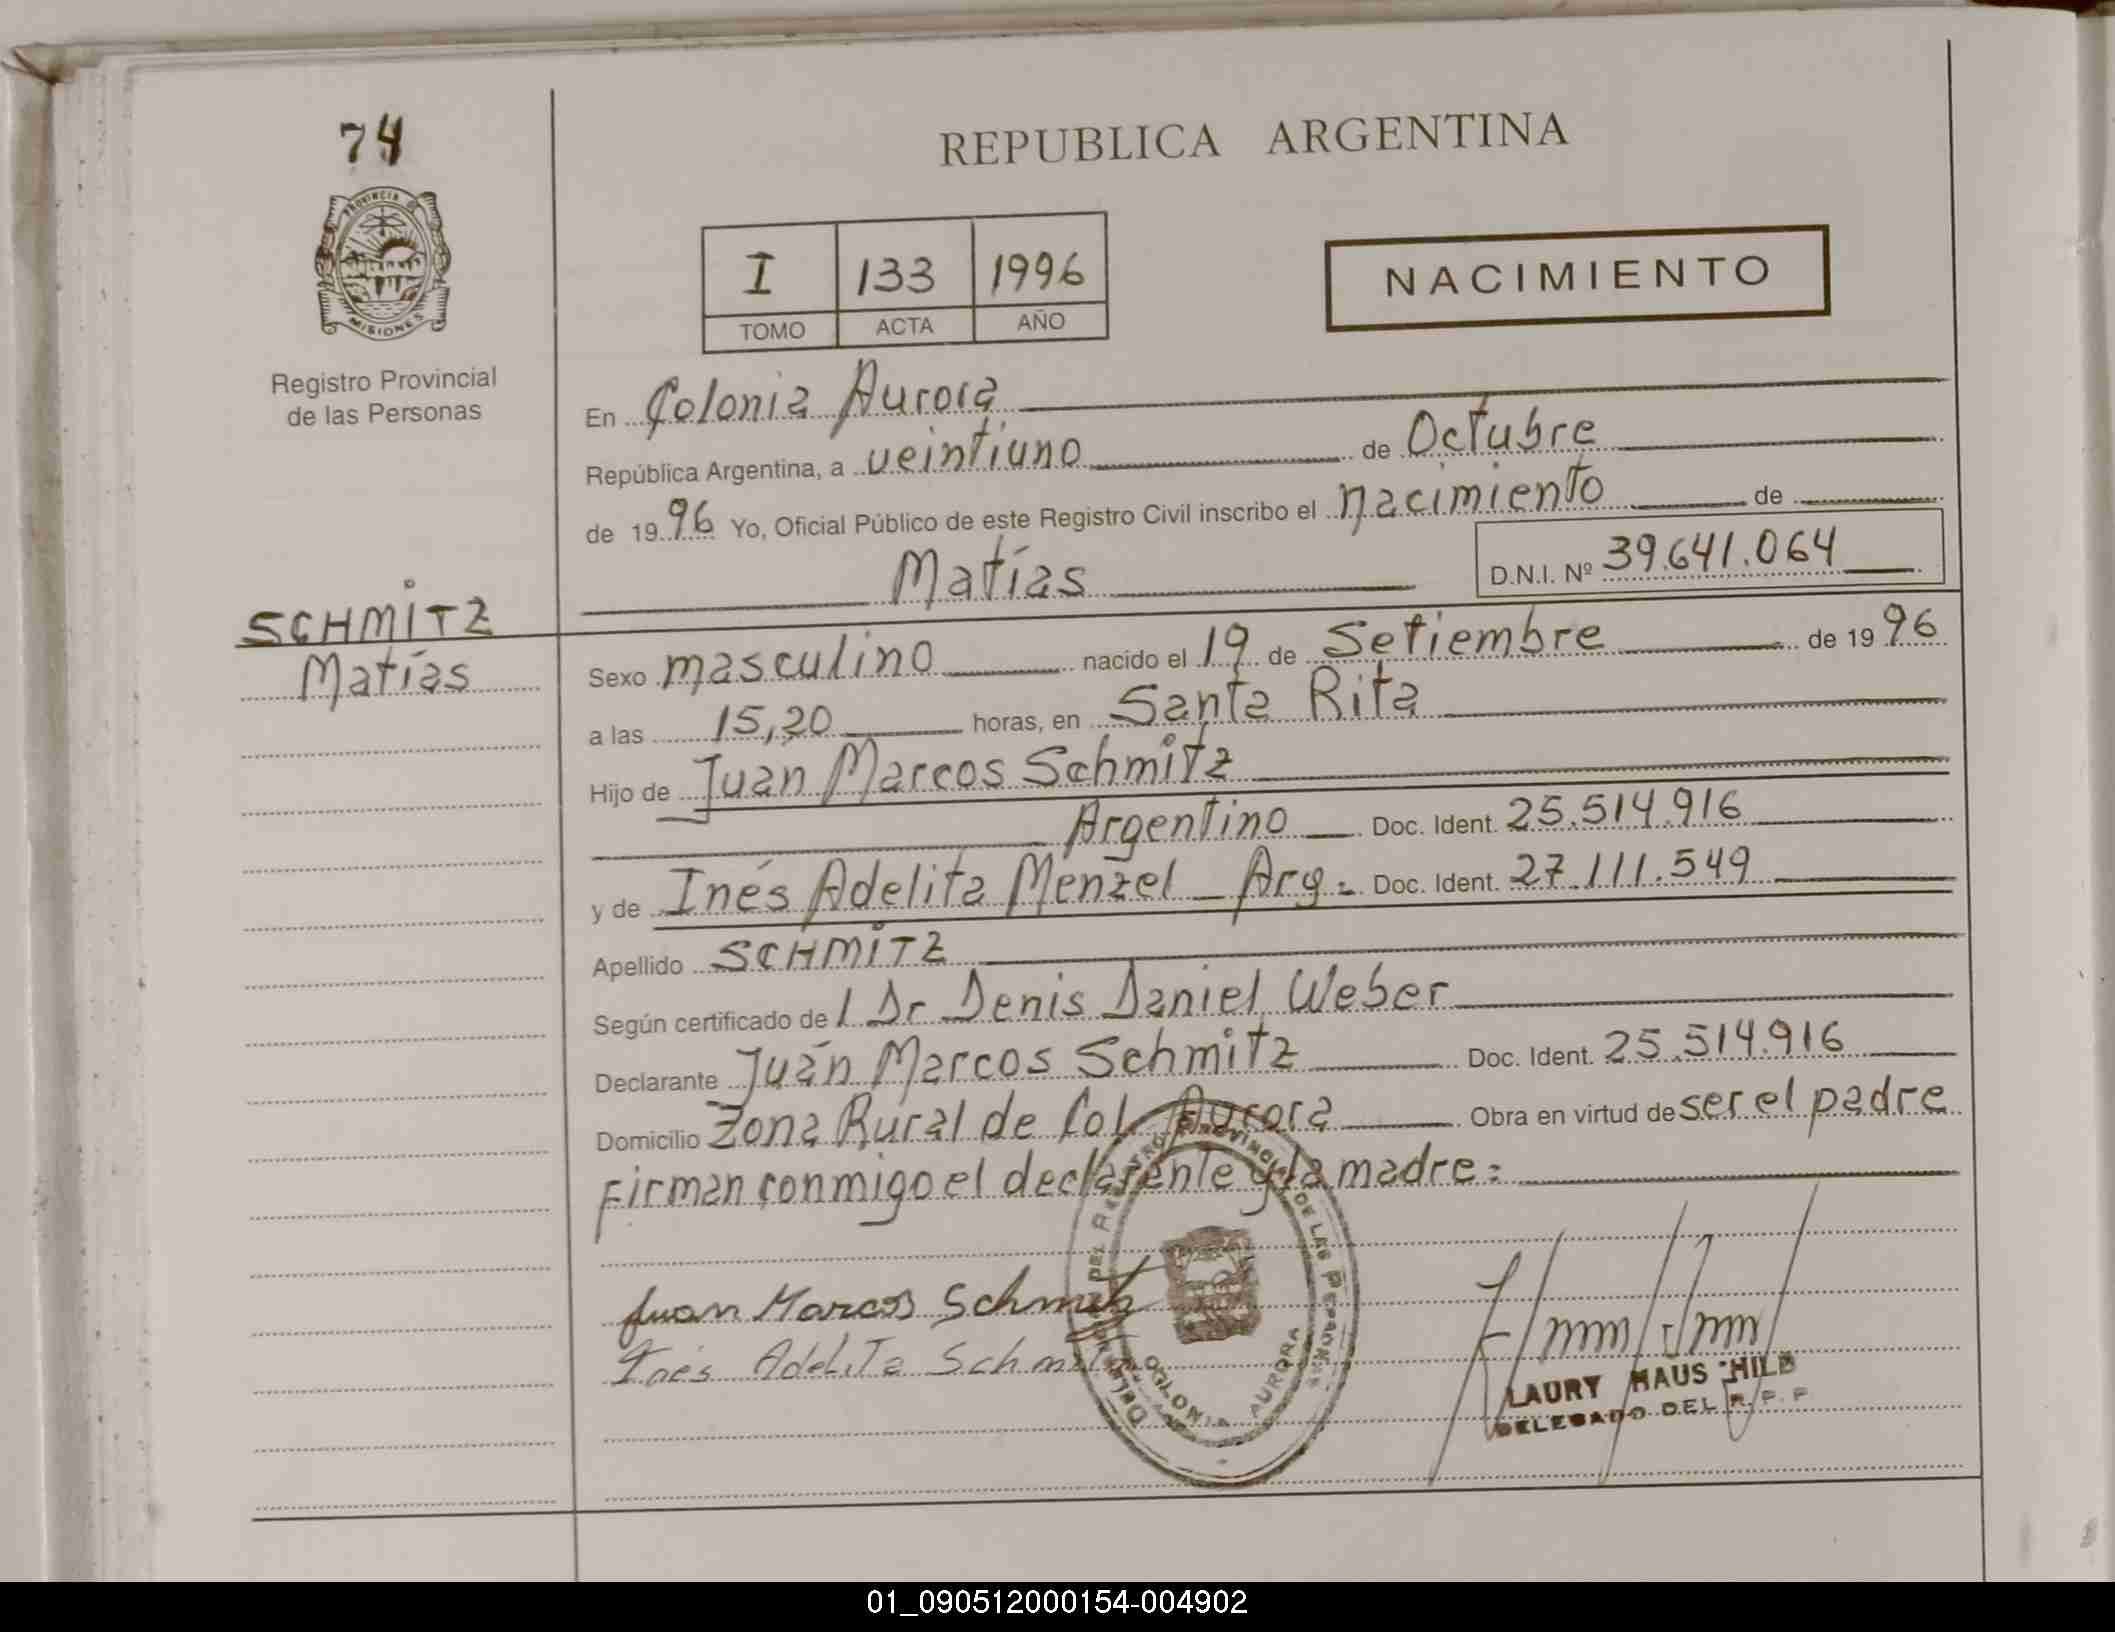 74
REPUBLICA ARGENTINA
PROVINCIA DE
MISIONES
Registro Provincial
de las Personas
I 133 1996
TOMO ACTA AÑO
NACIMIENTO
En Colonia Aurora
República Argentina, a veintiuno de Octubre
de 1996 Yo, Oficial Público de este Registro Civil inscribo el nacimiento de
Matías D.N.I. Nº 39.641.064
SCHMiTZ
Matías
Sexo masculino nacido el 19 de Setiembre de 1996
a las 15,20 horas, en Santa Rita
Hijo de Juan Marcos Schmitz
Argentino Doc. Ident. 25.514.916
y de Inés Adelita Menzel - Arg.- Doc. Ident. 27.111.549
Apellido SCHMiTZ
Según certificado de l Dr Denis Daniel Weber
Declarante Juan Marcos Schmitz Doc. Ident. 25.514.916
Domicilio Zona Rural de Col. Aurora Obra en virtud de ser el padre
Firman conmigo el declarante y la madre:
Juan Marcos Schmitz
Inés Adelita Schmitz
DEL REGISTRO PROVINCIAL DE LAS PERSONAS
AURORA
LAURY HAUS HILD
DELEGADO DEL R.P.P
01_090512000154-004902